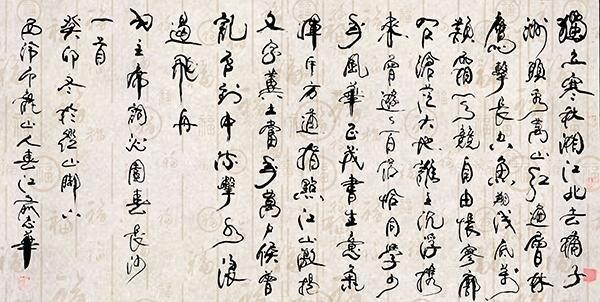 獨立寒秋湘江北去橘子
洲頭看萬山紅遍層林
鷹擊長空魚翔淺底萬
類霜天競自由悵寥廓
問滄茫大地誰主沉浮攜
來曾遊百侶恰同學少
年風華正茂書生意氣
揮斥方遒指點江山激揚
文字糞土當年萬戶侯曾
記否到中流擊水浪
遏飛舟
毛主席詞沁園春長沙
一首
癸卯冬於山腳下
西泠龍山人春江華